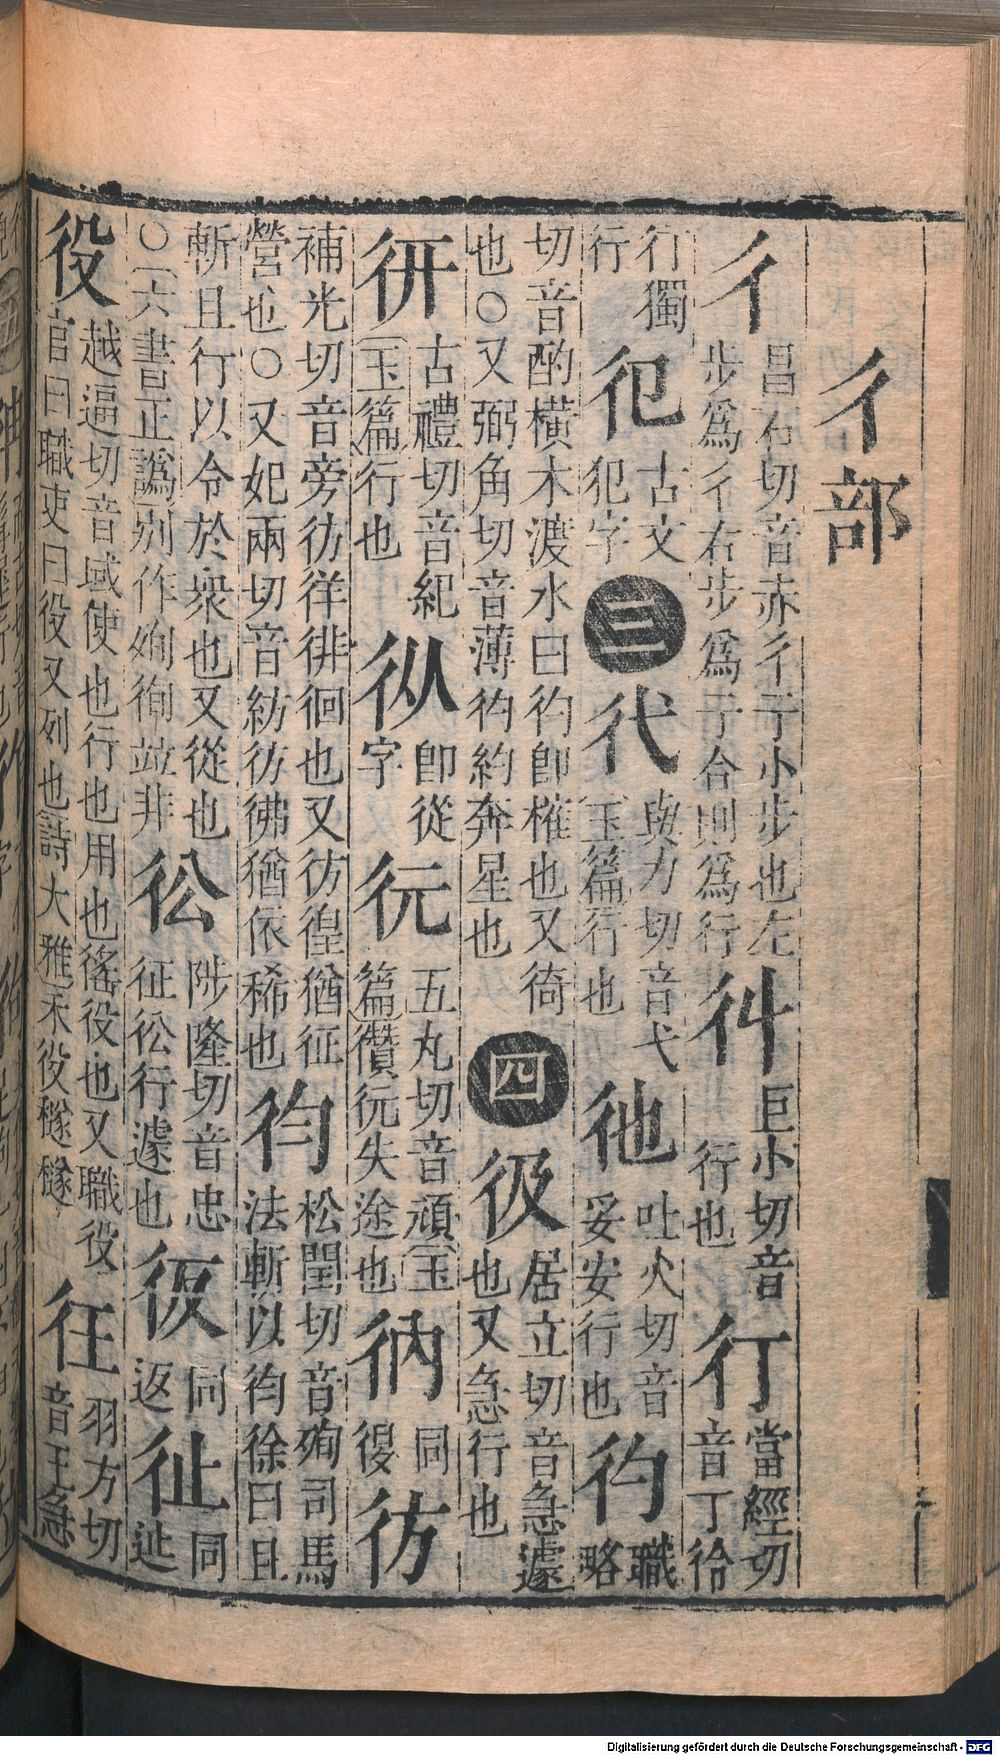 彳部
彳昌石切音赤彳亍小步也左步爲彳右步爲亍合則爲行
巨小切音行也
㣔當經切音丁彾㣔獨行
古文犯字
三
與力切音弋玉篇行也
彵吐火切音妥安行也
彴職略切音酌橫木渡水曰彴卽榷也又徛也○又弼角切音薄彴約奔星也
四
彶居立切音急遽也又急行也
古禮切音紀玉篇行也
卽從字
五丸切音頑玉篇失途也
同
彷補光切音旁彷徉徘徊也又彷徨猶征營也○又妃兩切音紡彷彿猶依稀也
松閏切音殉司馬法斬以徐曰且斬且行以令於衆也又從也○六書正譌別作殉徇竝非
彸陟隆切音忠征彸行遽也
同返
同
役越逼切音域使也行也用也徭役也又職役官曰職吏曰役又列也詩大雅禾役穟穟
彺羽方切音王急
Digitalisierung gefördert durch die Deutsche Forschungsgemeinschaft - DFG